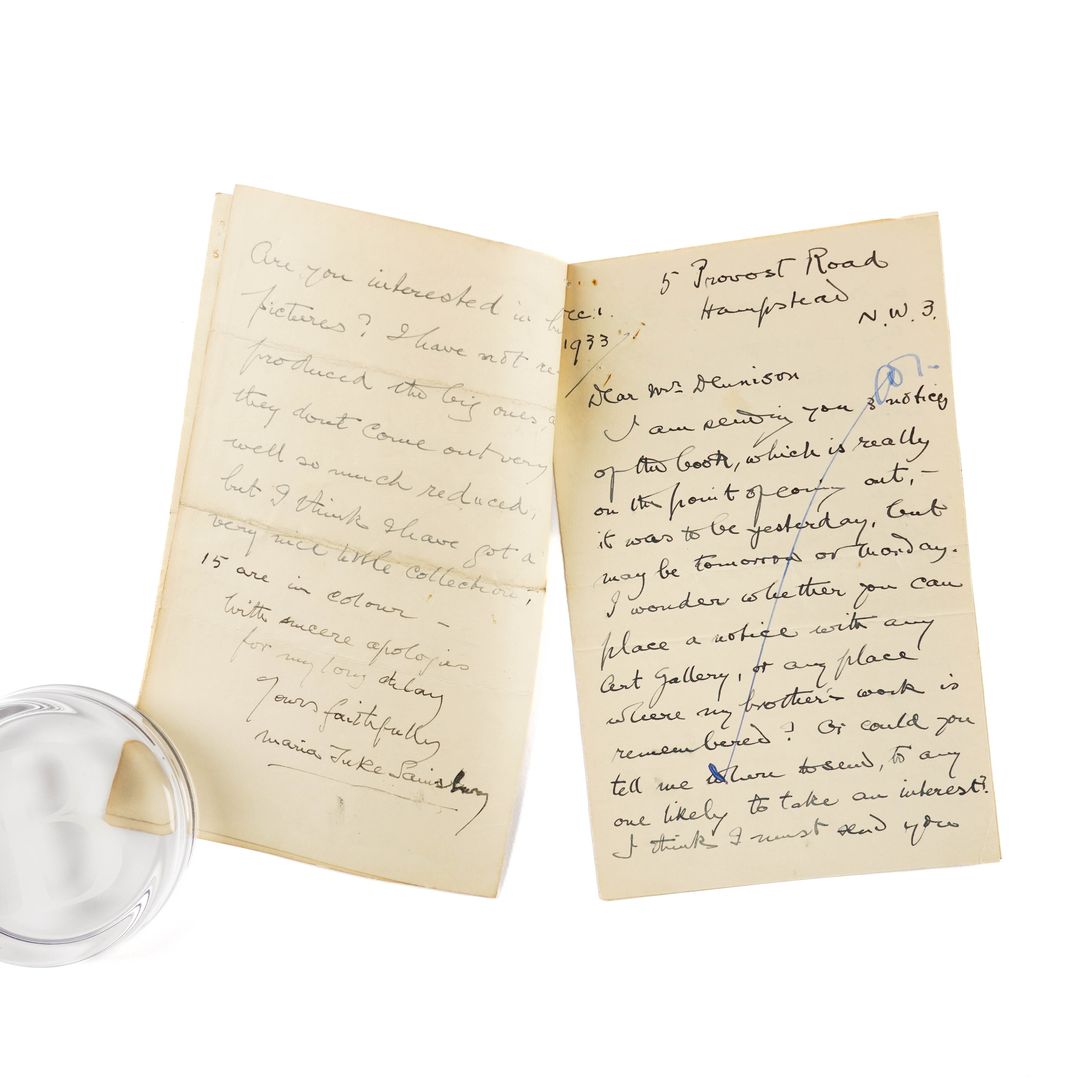 5 Provost Road
Hampstead
N.W. 3.
Dec. 1.
1933
Dear Mr Dennison
I am sending you 3 notices
of the book, which is really
on the point of coming out, –
it was to be yesterday, but
may be tomorrow or Monday.
I wonder whether you can
place a notice with any
Art Gallery, or any place
where my brother's work is
remembered? Or could you
tell me where to send, to any
one likely to take an interest?
I think I must send you
Are you interested in his
pictures? I have not re-
produced the big ones, as
they dont come out very
well so much reduced,
but I think I have got a
very nice little collection,
15 are in colour –
With sincere apologies
for my long delay
Yours faithfully
Maria Tuke Sainsbury
B